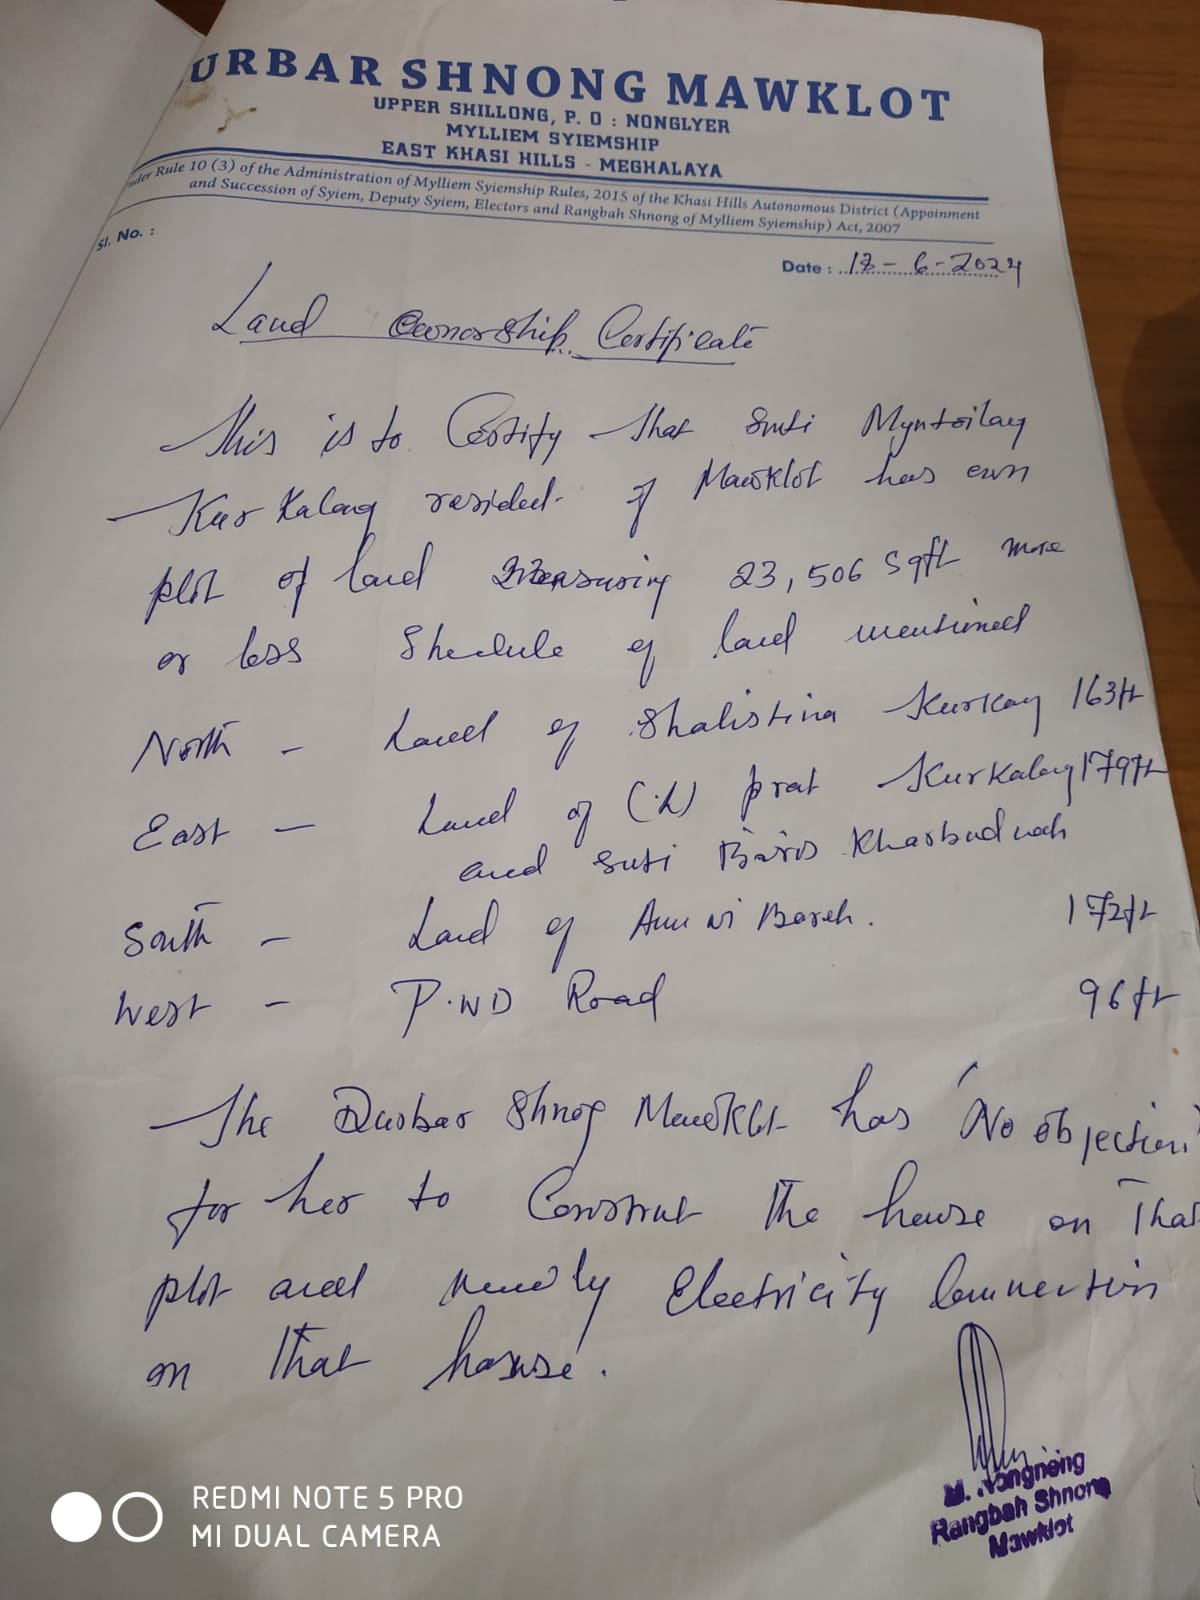 URBAR SHNONG MAWKLOT
UPPER SHILLONG, P. O : NONGLYER
MYLLIEM SYIEMSHIP
EAST KHASI HILLS - MEGHALAYA
nder Rule 10 (3) of the Administration of Mylliem Syiemship Rules, 2015 of the Khasi Hills Autonomous District (Appoinment
and Succession of Syiem, Deputy Syiem, Electors and Rangbah Shnong of Mylliem Syiemship) Act, 2007
Sl. No. :
Date : -6-2024
Land Ownership Certificate
This is to Certify that Smti
Kur Kalang resident of Mawklot has own
plot of land measuring 23,506 Sqft more
or less Shedule of land mentioned
North - Land of Shalistina 163ft
East - Land of (L) prat Kurkalang 179ft
and Smti
South - Land of 172ft
West - P.WD Road 96 ft
The Durbar Shnog Mawklot has 'No objection'
for her to Construct the house on that
plot and Electricity Connection
on that house.
M. .Yongneing
Rangbah Shnong
Mawklot
REDMI NOTE 5 PRO
MI DUAL CAMERA